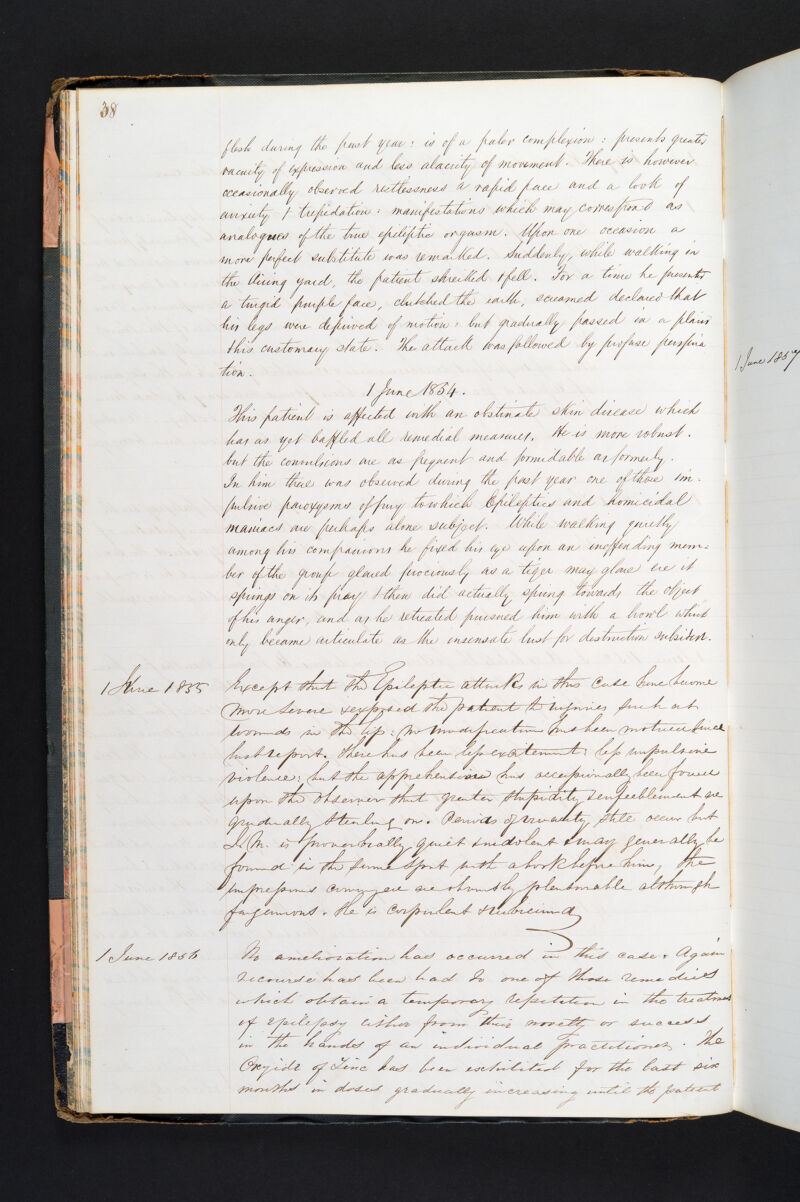 38
flesh during the past year: is of a paler complexion: presents greater
vacuity of expression and less alacrity of movement. There is however
occasionally observed restlessness a rapid pace and a look of
anxiety & trepidation: manifestations which may correspond as
analogues of the true epileptic orgasm. Upon one occasion a
more perfect substitute was remarked. Suddenly, while walking in
the Airing yard, the patient shrieked & fell. For a time he presents
a turgid purple face, clutched the earth, screamed declared that
his legs were deprived of motion: but gradually passed in a
this customary state. The attack was followed by profuse perspira
tion.
1 June 1854.
This patient is affected with an obstinate skin disease which
has as yet baffled all remedial measures. He is more robust.
but the convulsions are as frequent and formidable as formerly.
In him there was observed during the past year one of those im-
pulsive paroxysms of fury to which Epileptics and homicidal
maniacs are perhaps alone subject. While walking quietly
among his companions he fixed his eye upon an inoffending mem-
ber of the group glared ferociously as a tiger may glare ere it
springs on its pray & then did actually spring towards the object
of his anger, and as he retreated pursued him with a howl which
only became articulate as the insensate lust for destruction subsided.
1 June 1855
Except that the Epileptic attacks in this case have become
more severe & exposed the patient to injuries such as
wounds in the lip: no modification has been noticed since
last report. There has been less excitement: less impulsive
violence: but the apprehension has occasionally been forced
upon the observer that greater stupidity & enfeeblement are
gradually stealing on. Periods of vivacity still occur but
J. M. is proverbially quiet & indolent & may generally be
found in the same spot with a book before him, the
impressions conveyed are obviously pleasurable although
fugacious. He is corpulent & rubicund
1 June 1856
No amelioration has occurred in this case. Again
recourse has been had to one of those remedies
which obtain a temporary reputation in the treatment
of epilepsy either from their novelty or success
in the hands of an individual practitioner. The
Oxyide of Zinc has been exhibited for the last six
months in doses gradually increasing until the patient
1 June 1857